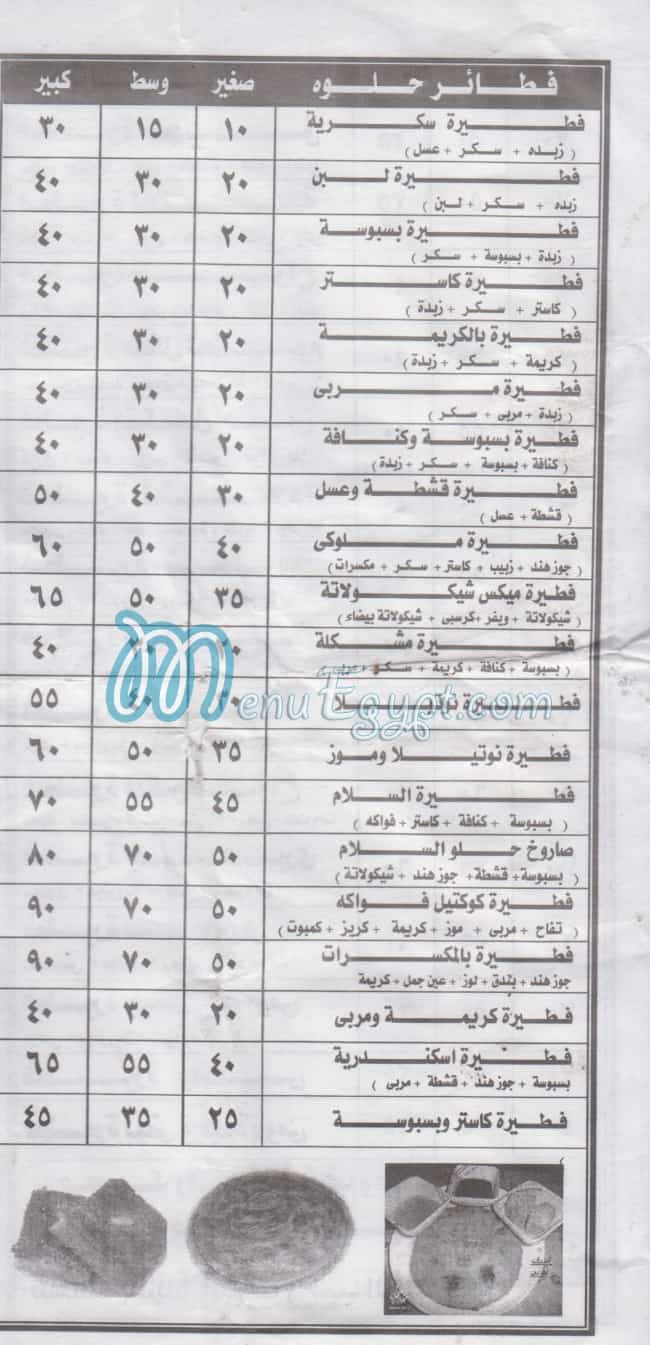 فطائر حلوه صغير وسط كبير
فطيرة سكرية ١٠ ١٥ ٣٠
( زبده + سكر + عسل )
فطيرة لبن ٢٠ ٣٠ ٤٠
زبده + سكر + لبن )
فطيرة بسبوسة ٢٠ ٣٠ ٤٠
( زبدة + بسبوسة + سكر )
فطيرة كاستر ٢٠ ٣٠ ٤٠
( كاستر + سكر + زبدة )
فطيرة بالكريمة ٢٠ ٣٠ ٤٠
( كريمة + سكر + زبدة )
فطيرة مربى ٢٠ ٣٠ ٤٠
( زبدة + مربى + سكر )
فطيرة بسبوسة وكنافة ٢٠ ٣٠ ٤٠
( كنافة + بسبوسة + سكر + زبدة )
فطيرة قشطة وعسل ٣٠ ٤٠ ٥٠
( قشطة + عسل )
فطيرة ملوكى ٤٠ ٥٠ ٦٠
( جوز هند + زبيب + كاستر + سكر + مكسرات )
فطيرة ميكس شيكولاتة ٣٥ ٥٠ ٦٥
( شيكولاتة + ويفر + كرسبى + شيكولاتة بيضاء )
فطيرة مشكلة ٤٠
( بسبوسة + كنافة + كريمة + سكر +
فطيرة نوتيلا ٤٠ ٥٥
MenuEgypt.com
فطيرة نوتيلا وموز ٣٥ ٥٠ ٦٠
فطيرة السلام ٤٥ ٥٥ ٧٠
( بسبوسة + كنافة + كاستر + فواكه )
صاروخ حلو السلام ٥٠ ٧٠ ٨٠
( بسبوسة + قشطة + جوز هند + شيكولاتة )
فطيرة كوكتيل فواكه ٥٠ ٧٠ ٩٠
( تفاح + مربى + موز + كريمة + كريز + كمبوت )
فطيرة بالمكسرات ٥٠ ٧٠ ٩٠
جوز هند + بندق + لوز + عين جمل + كريمة
فطيرة كريمة ومربى ٢٠ ٣٠ ٤٠
فطيرة اسكندرية ٤٠ ٥٥ ٦٥
بسبوسة + جوز هند + قشطة + مربى )
فطيرة كاستر وبسبوسة ٢٥ ٣٥ ٤٥